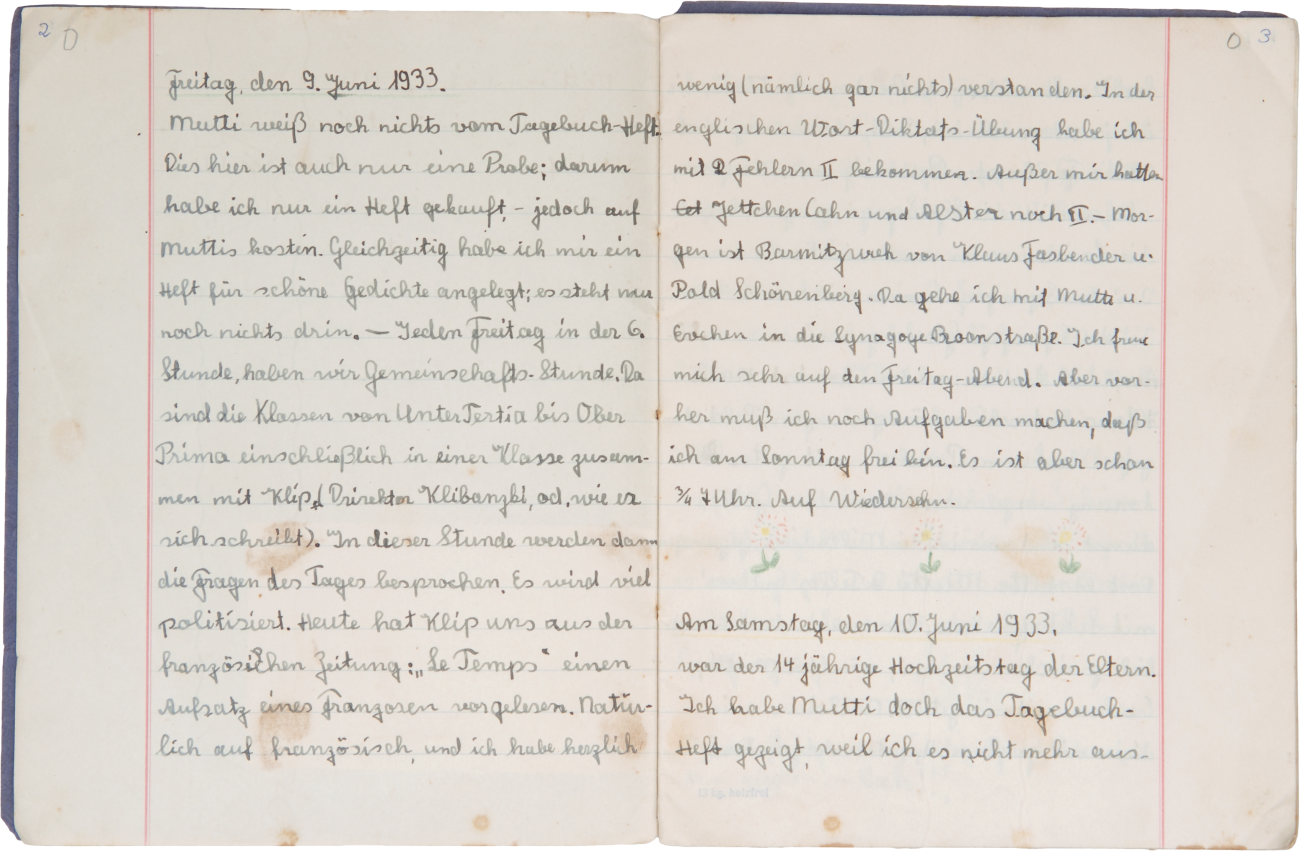 2 0
Freitag, den 9. Juni 1933.
Mutti weiß noch nichts vom Tagebuch-Heft.
Dies hier ist auch nur eine Probe; darum
habe ich nur ein Heft gekauft, - jedoch auf
Muttis kosten. Gleichzeitig habe ich mir ein
Heft für schöne Gedichte angelegt; es steht nur
noch nichts drin. — Jeden Freitag in der 6.
Stunde, haben wir Gemeinschafts-Stunde. Da
sind die Klassen von UnterTertia bis Ober
Prima einschließlich in einer Klasse zusam-
men mit Klip, (Direktor Klibanzki, od. wie er
sich schreibt). In dieser Stunde werden dann
die Fragen des Tages besprochen. Es wird viel
politisiert. Heute hat Klip uns aus der
französischen Zeitung: „Le Temps" einen
Aufsatz eines Franzosen vorgelesen. Natür-
lich auf französisch, und ich habe herzlich
0 3
wenig (nämlich gar nichts) verstanden. In der
englischen Wort-Diktats-Übung habe ich
mit 2 Fehlern II bekommen. Außer mir hatten
Jettchen Cahn und Alster noch II. - Mor-
gen ist Barmitzweh von Klaus Fasbender u.
Pold Schönenberg. Da gehe ich mit Mutti u.
Evchen in die Synagoge Roonstraße. Ich freue
mich sehr auf den Freitag-Abend. Aber vor-
her muß ich noch Aufgaben machen, daß
ich am Sonntag frei bin. Es ist aber schon
¾ 7 Uhr. Auf Wiedersehn.
Am Samstag, den 10. Juni 1933,
war der 14 jährige Hochzeitstag der Eltern.
Ich habe Mutti doch das Tagebuch-
Heft gezeigt, weil ich es nicht mehr aus-